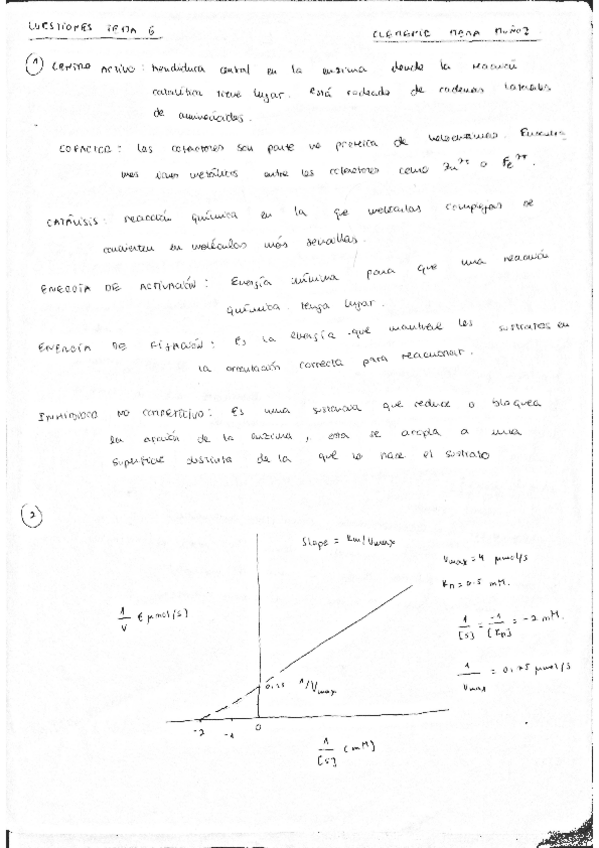 CUESTIONES TEMA 6
CLEMENTE MENA MUÑOZ
① CENTRO ACTIVO: hendidura central en la enzima donde la reacción
catalítica tiene lugar. Está rodeado de cadenas laterales
de aminoácidos.
COFACTOR: los cofactores son parte no proteica de
mos iones metálicos entre los cofactores como Zn²⁺ o Fe²⁺.
CATÁLISIS: reacción química en la que moléculas complejas se
convierten en moléculas más sencillas.
ENERGÍA DE ACTIVACIÓN: Energía mínima para que una reacción
química tenga lugar.
ENERGÍA DE FIJACIÓN: Es la energía que mantiene los sustratos en
la orientación correcta para reaccionar.
INHIBIDOR NO COMPETITIVO: Es una sustancia que reduce o bloquea
la acción de la enzima, se acopla a una
superficie distinta de la que lo hace el sustrato
②
Slope = Km/Vmax
Vmax = 4 μmol/s
Km = 0.5 mM.
1/V (μmol/s)
1/[S] = -1/[Km] = -2 mM.
1/Vmax = 0.25 μmol/s
0.25 1/Vmax
-2 -1 0
1/[S] (mM)